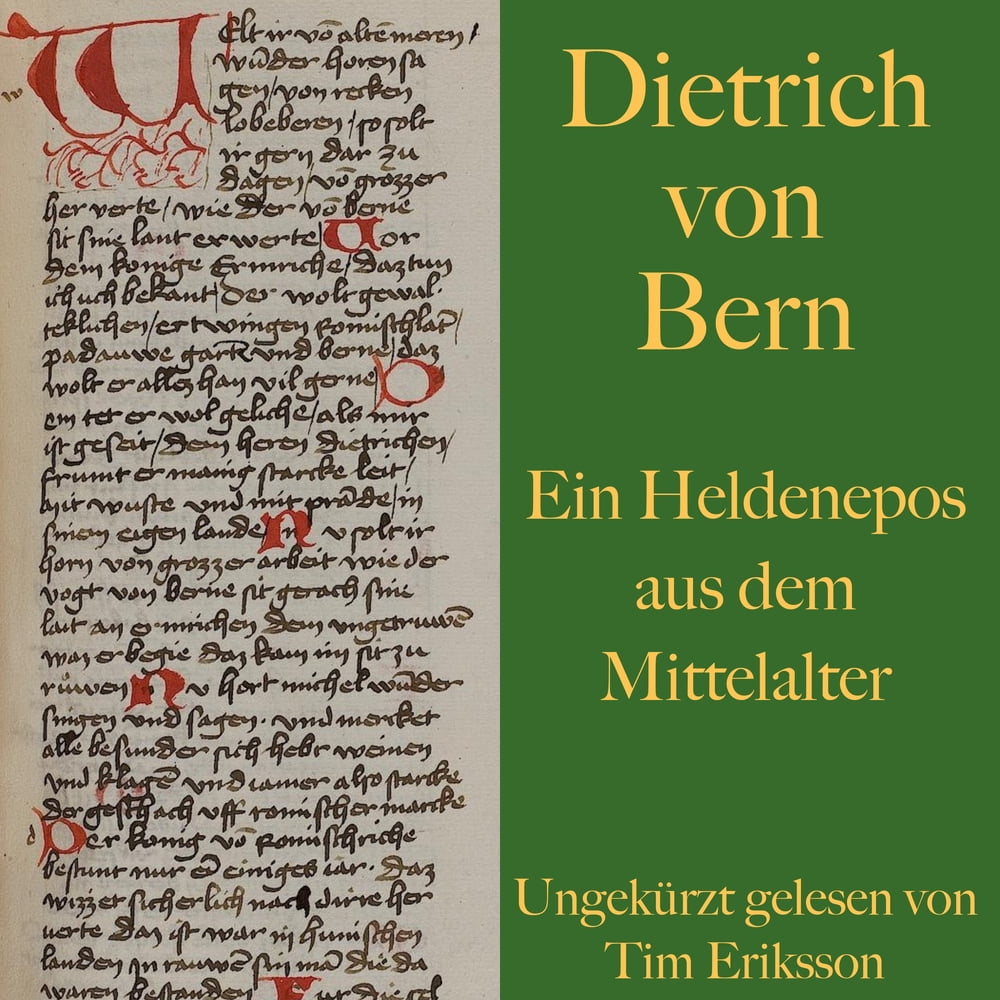 w
Welt ir võ altẽ meren,
wũder horen sa
gen/von recken
lobeberen/so solt
ir gern dar zu
dagen/võ grozzer
her verte/wie der võ berne
sit sine lant erwerte/Vor
dem konige Ermriche/daz tun
ich uch bekant/der wolt gewal
teklichen/er twingen Romischlãt/
padauwe gartẽ und berne/daz
wolt er allez han vil gerne/D
em tet er wol geliche/als mir
ist geseit/dem heren dietrichen/
frumt er manig starcke leit/
mit wuste und mit prãde/in
sinem eigen lande/N u solt ir
horn von grozzer arbeit wie der
vogt von berne sit gerach sine
lait an ermrichen dem ungetruwẽ
waz er begie daz kam im sit zu
ruwen N u hort michel wũder
singen und sagen. und mercket
alle besunder sich hebt weinen
und klagẽ und iamer also starcke
der geschach uff romischer marcke
d Der konig võ Romischriche
bestunt nur eĩ einiges iar. daz
wizzet sicherlich nach dirre her
verte daz ist war in hunischen
landen in rauwẽ sin mã die da
waren bestanden
Dietrich
von
Bern
Ein Heldenepos
aus dem
Mittelalter
Ungekürzt gelesen von
Tim Eriksson